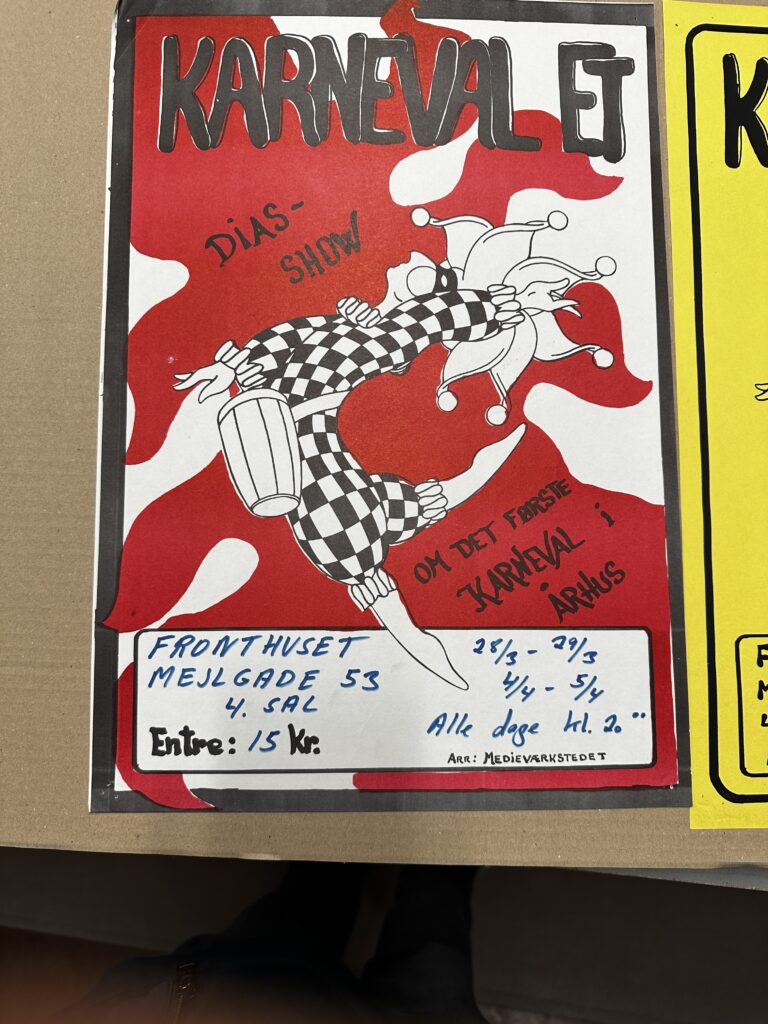 KARNEVALET
DIAS-
SHOW
OM DET FØRSTE
KARNEVAL i
ÅRHUS
FRONTHUSET
MEJLGADE 53
4. SAL
Entre: 15 Kr.
28/3 - 29/3
4/4 - 5/4
Alle dage kl. 20
ARR: MEDIEVÆRKSTEDET
K
F
M
4